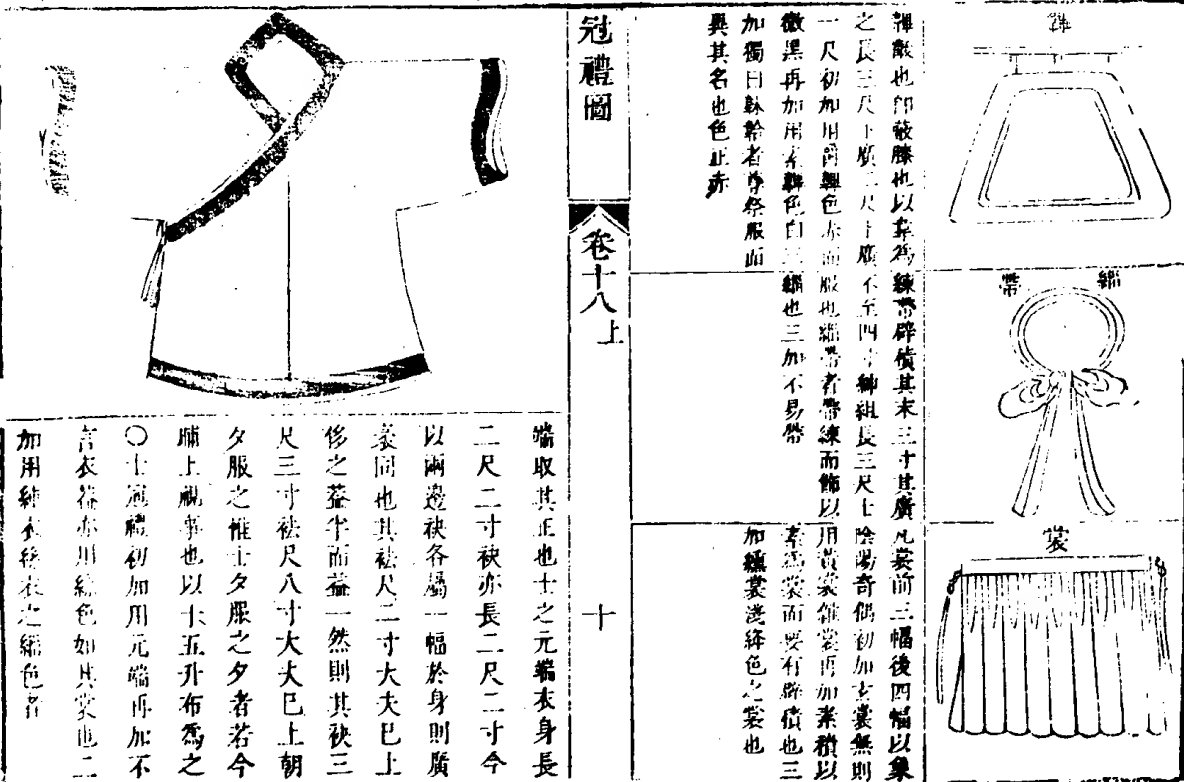 韠
韠蔽也卽蔽膝也以韋爲
之長三尺下廣二尺上廣
一尺初加用爵韠色赤而
微黑再加用素韠色白三
加獨曰韎韐者尊祭服而
異其名也色正赤
緇帶
練帶辟積其末三寸其廣
不至四寸紳組長三尺士
服也緇帶者帶練而飾以
緇也三加不易帶
裳
凡裳前三幅後四幅以象
陰陽奇偶初加玄裳無則
用黃裳雜裳再加素積以
素爲裳而要有辟積也三
加纁裳淺絳色之裳也
冠禮圖
卷十八上
十
端取其正也士之元端衣身長
二尺二寸袂亦長二尺二寸今
以兩邊袂各屬一幅於身則廣
袤同也其袪尺二寸大夫巳上
侈之葢半而益一然則其袂三
尺三寸袪尺八寸大夫巳上朝
夕服之惟士夕服之夕者若今
晡上視事也以十五升布爲之
〇士冠禮初加用元端再加不
言衣葢亦用繒色如其裳也二
加用純衣絲衣之緇色者